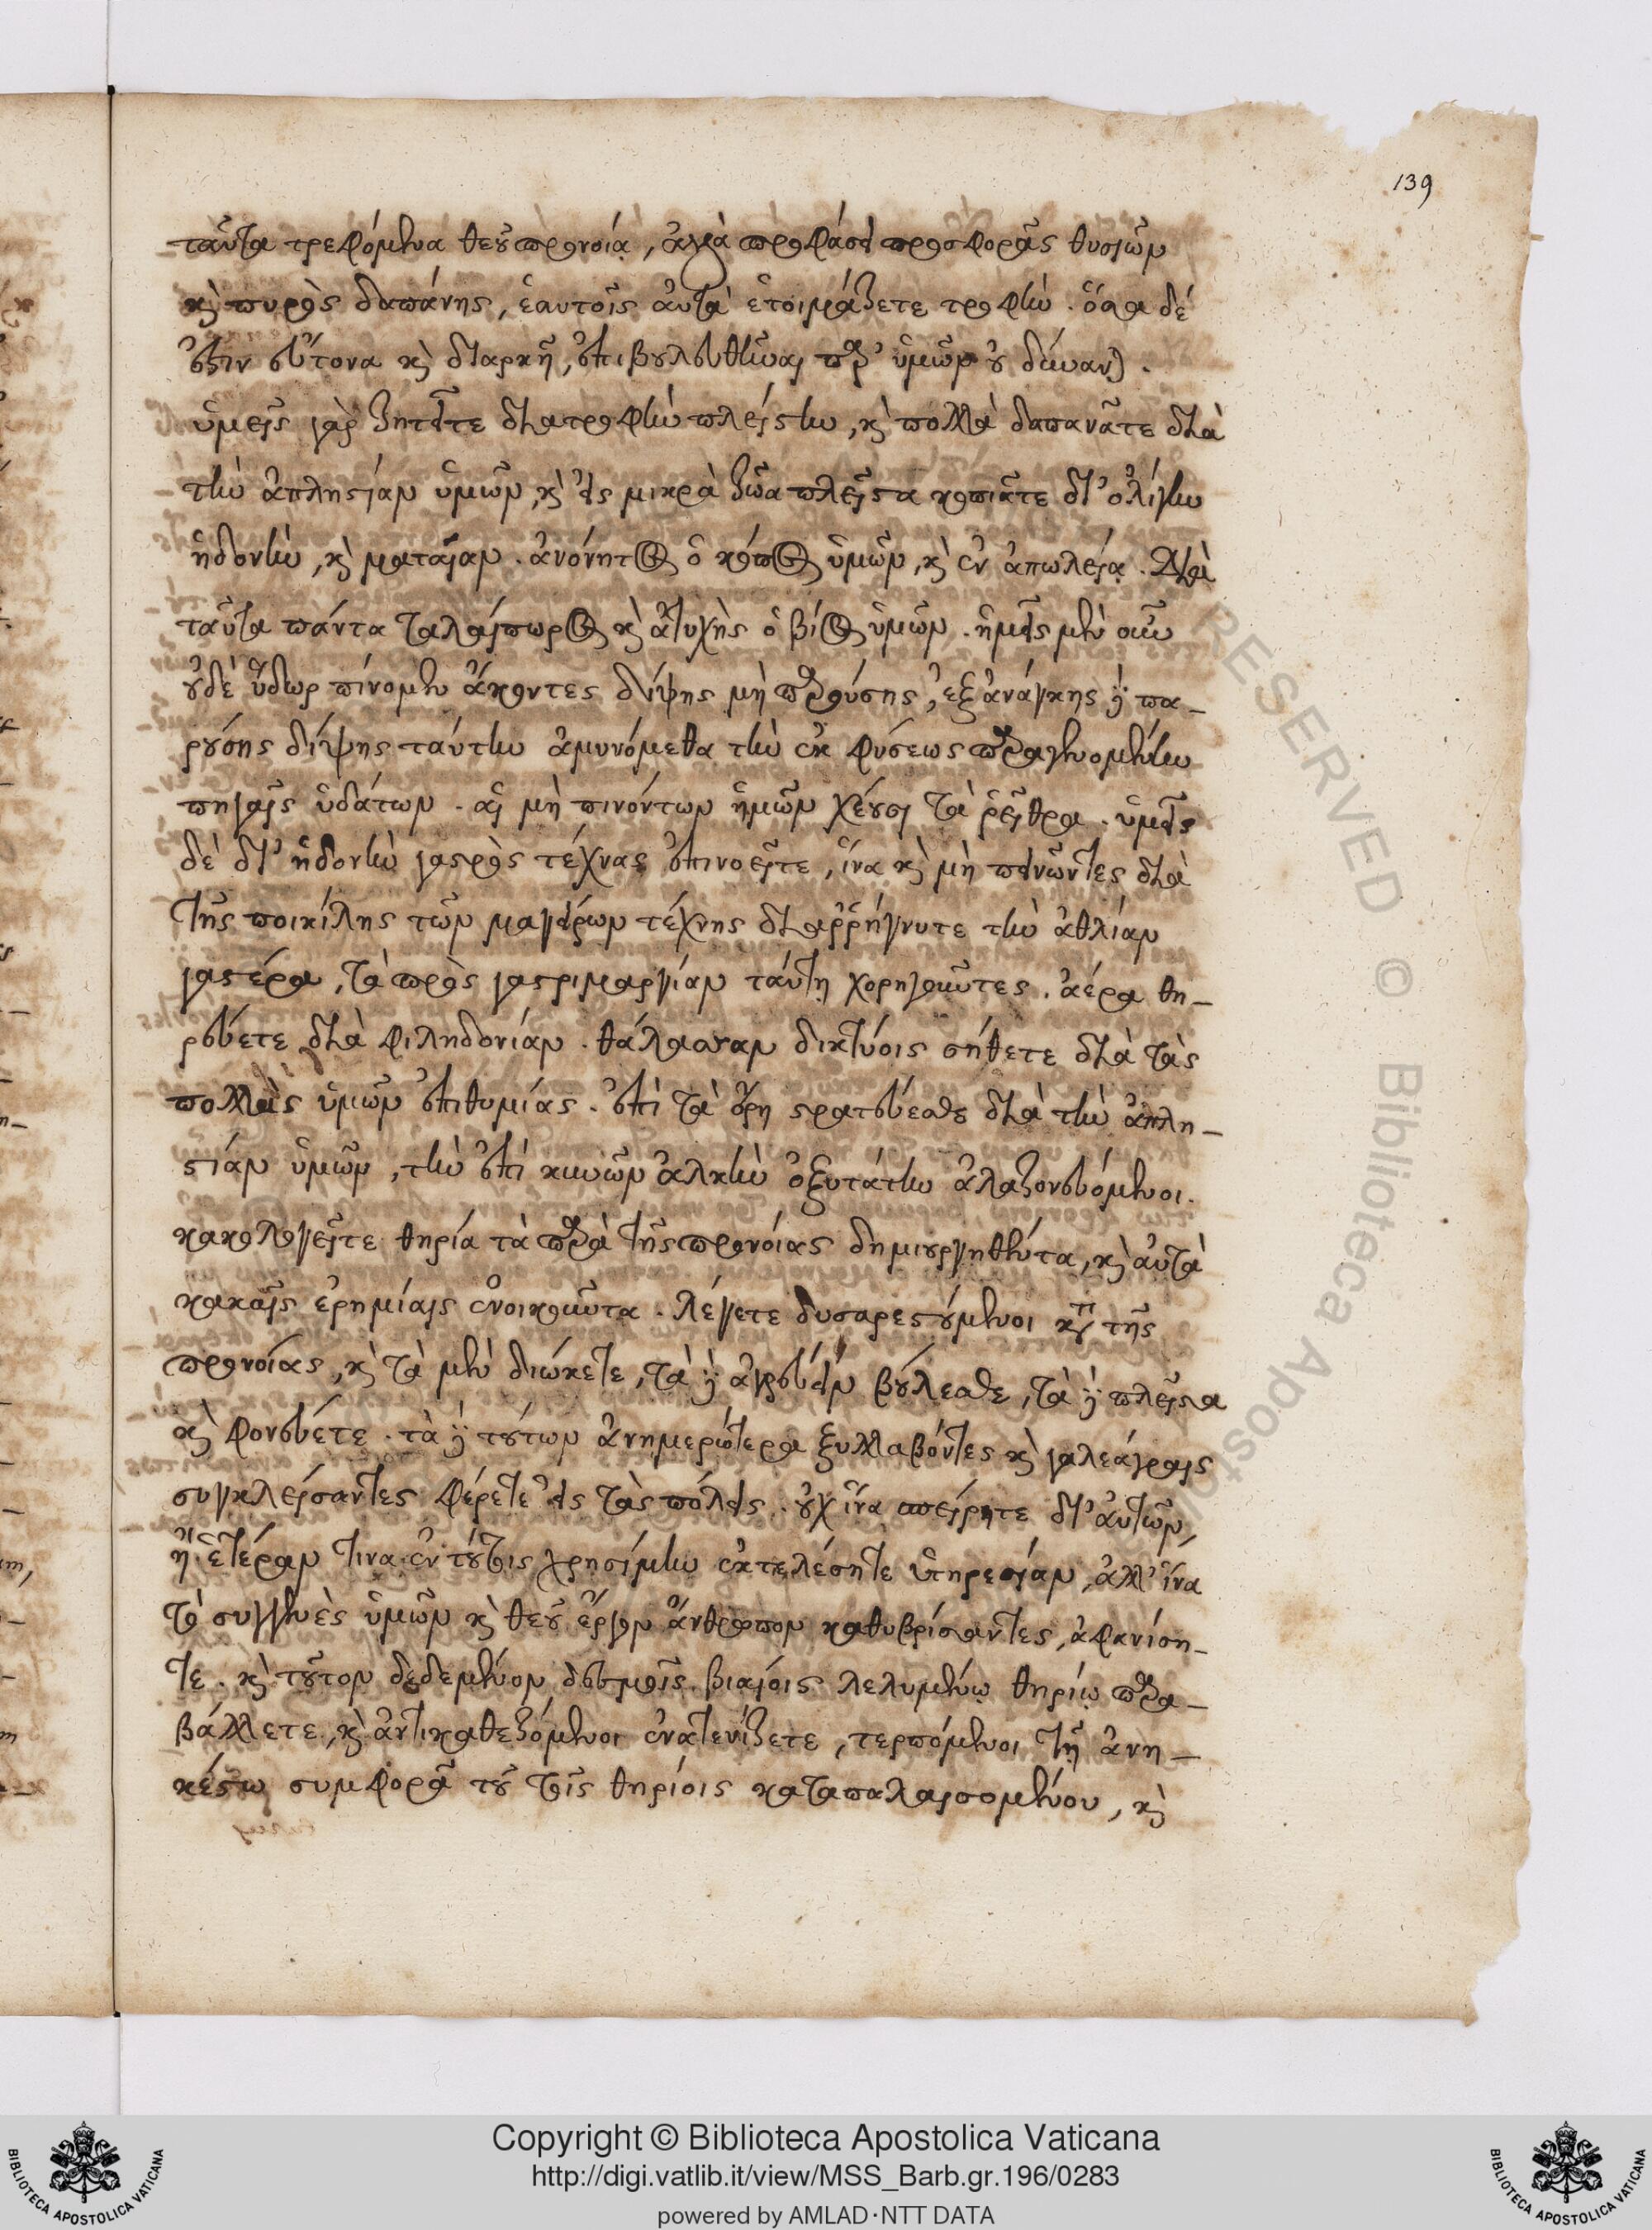 139
ταῦτα τρεφόμενα θεοῦ προνοίᾳ, ἀλλὰ προφάσει προσφορᾶς θυσιῶν
καὶ πυρὸς δαπάνης, ἑαυτοῖς αὐτὰ ἑτοιμάζετε τροφήν. ὅσα δέ
ἐστιν εὔτονα καὶ διαρκῆ, ἐπιβουλευθῆναι παρ' ὑμῶν οὐ δύναται.
ὑμεῖς γὰρ ζητεῖτε διατροφὴν πλείστην, καὶ πολλὰ δαπανᾶτε διὰ
τὴν ἀπληστίαν ὑμῶν, καὶ εἰς μικρὰ ζῶα πλεῖστα κοπιᾶτε δι' ὀλίγην
ἡδονὴν, καὶ ματαίαν. ἀνόνητος ὁ κόπος ὑμῶν, καὶ ἐν ἀπωλείᾳ. Διὰ
ταῦτα πάντα ταλαίπωρος καὶ ἀτυχὴς ὁ βίος ὑμῶν. ἡμεῖς μὲν οὖν
οὐδὲ ὕδωρ πίνομεν ἄκοντες δίψης μὴ παρούσης, ἐξ ἀνάγκης δὲ πα-
ρούσης δίψης ταύτην ἀμυνόμεθα τὴν ἐκ φύσεως παραγενομένην
πηγαῖς ὑδάτων. αἳ μὴ πινόντων ἡμῶν χέουσι τὰ ῥεῖθρα. ὑμεῖς
δὲ δι' ἡδονὴν γαστρὸς τέχνας ἐπινοεῖτε, ἵνα καὶ μὴ πεινῶντες διὰ
τῆς ποικίλης τῶν μαγείρων τέχνης διαῤῥήγνυτε τὴν ἀθλίαν
γαστέρα, τὰ πρὸς γαστριμαργίαν ταύτῃ χορηγοῦντες. ἀέρα θη-
ρεύετε διὰ φιληδονίαν. θάλασσαν δικτύοις σήθετε διὰ τὰς
πολλὰς ὑμῶν ἐπιθυμίας. ἐπὶ τὰ ὄρη στρατεύεσθε διὰ τὴν ἀπλη-
στίαν ὑμῶν, τὴν ἐπὶ κυνῶν ἀλκὴν ὀξυτάτην ἀλαζονευόμενοι.
κακολογεῖτε θηρία τὰ παρὰ τῆς προνοίας δημιουργηθέντα, καὶ αὐτὰ
κακαῖς ἐρημίαις ἐνοικοῦντα. λέγετε δυσαρεστούμενοι κατὰ τῆς
προνοίας, καὶ τὰ μὲν διώκετε, τὰ δὲ ἀγρεύειν βούλεσθε, τὰ δὲ πλεῖστα
καὶ φονεύετε. τὰ δὲ τούτων ἀνημερώτερα ξυλλαβόντες καὶ γαλεάγραις
συγκλείσαντες φέρετε εἰς τὰς πόλεις. οὐχ ἵνα σπείρητε δι' αὐτῶν,
ἢ ἑτέραν τινα ἐν τούτοις χρησίμην ἐκτελέσητε ὑπηρεσίαν, ἀλλ' ἵνα
τὸ συγγενὲς ὑμῶν καὶ θεοῦ ἔργον ἄνθρωπον καθυβρίσαντες, ἀφανίση-
τε. καὶ τοῦτον δεδεμένον δεσμοῖς βιαίοις λελυμένῳ θηρίῳ παρα-
βάλλετε, καὶ ἀντικαθεζόμενοι ἐνατενίζετε, τερπόμενοι τῇ ἀνη-
κέστῳ συμφορᾷ τοῦ τοῖς θηρίοις καταπαλαισομένου, καὶ
RESERVED © Biblioteca Apostol
Copyright © Biblioteca Apostolica Vaticana
http://digi.vatlib.it/view/MSS_Barb.gr.196/0283
powered by AMLAD·NTT DATA
BIBLIOTECA APOSTOLICA VATICANA
BIBLIOTECA APOSTOLICA VATICANA